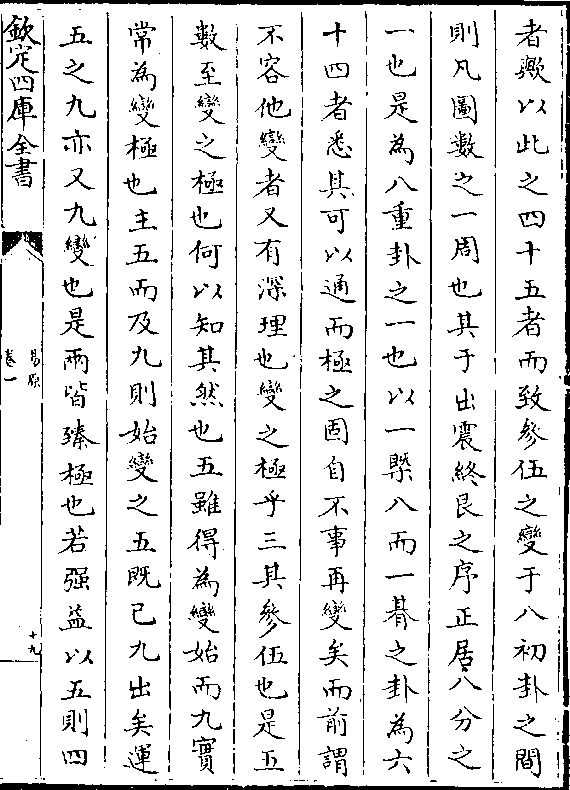 者歟以此之四十五者而致參伍之變于八初卦之間
則凡圖數之一周也其于出震終艮之序正居八分之
一也是為八重卦之一也以一槩八而一朞之卦為六
十四者悉其可以通而極之固自不事再變矣而前謂
不容他變者又有深理也變之極乎三其參伍也是五
數至變之極也何以知其然也五雖得為變始而九實
常為變極也主五而及九則始變之五既已九出矣運
五之九亦又九變也是兩皆臻極也若强益以五則四
欽定四庫全書
易原
卷一
十九